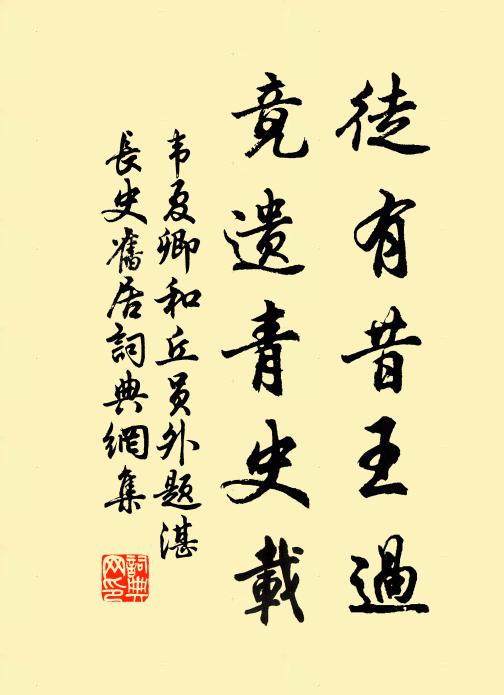 徒有昔王過
竟遺青史載
韦夏卿和丘员外题湛
長史舊居詞典網集
詞典
网印